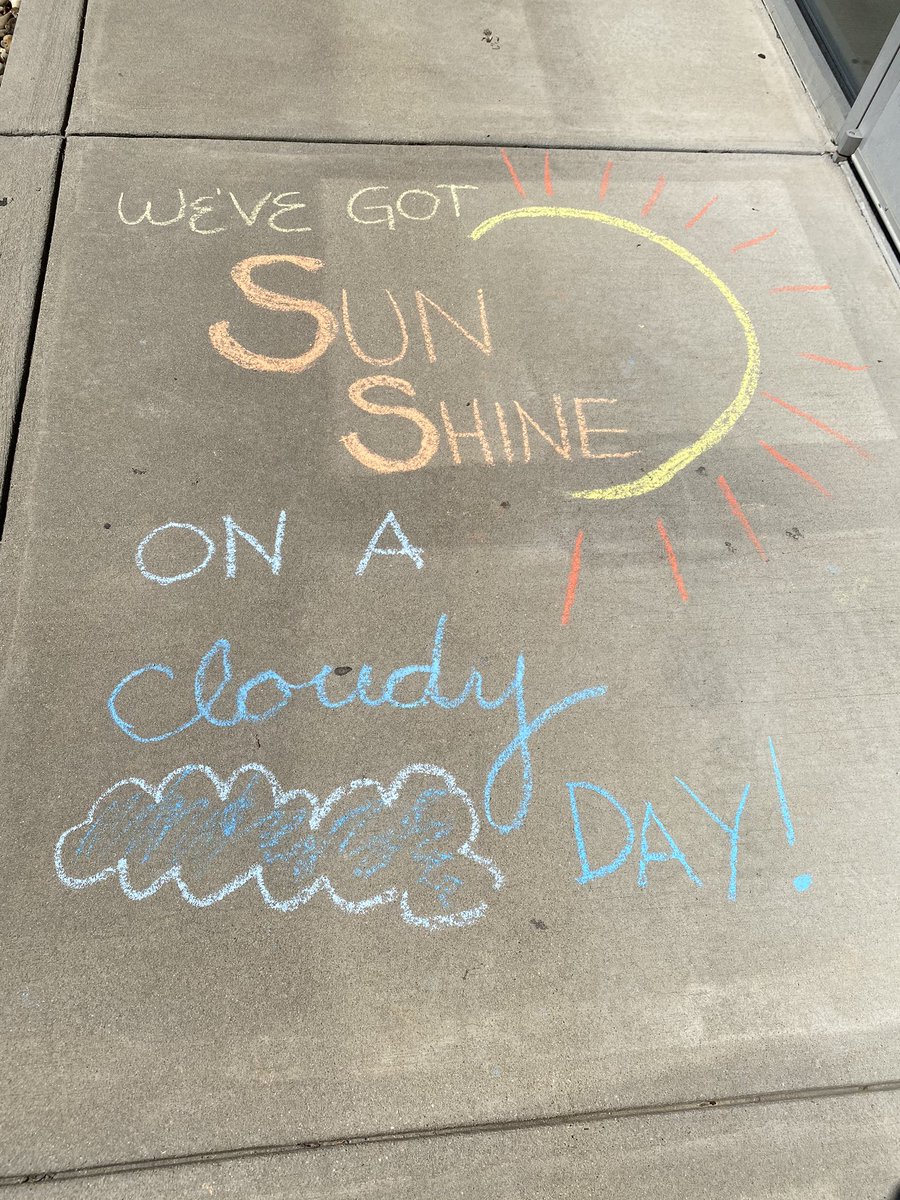 WE'VE GOT
SUN
SHINE
ON A
cloudy
DAY!